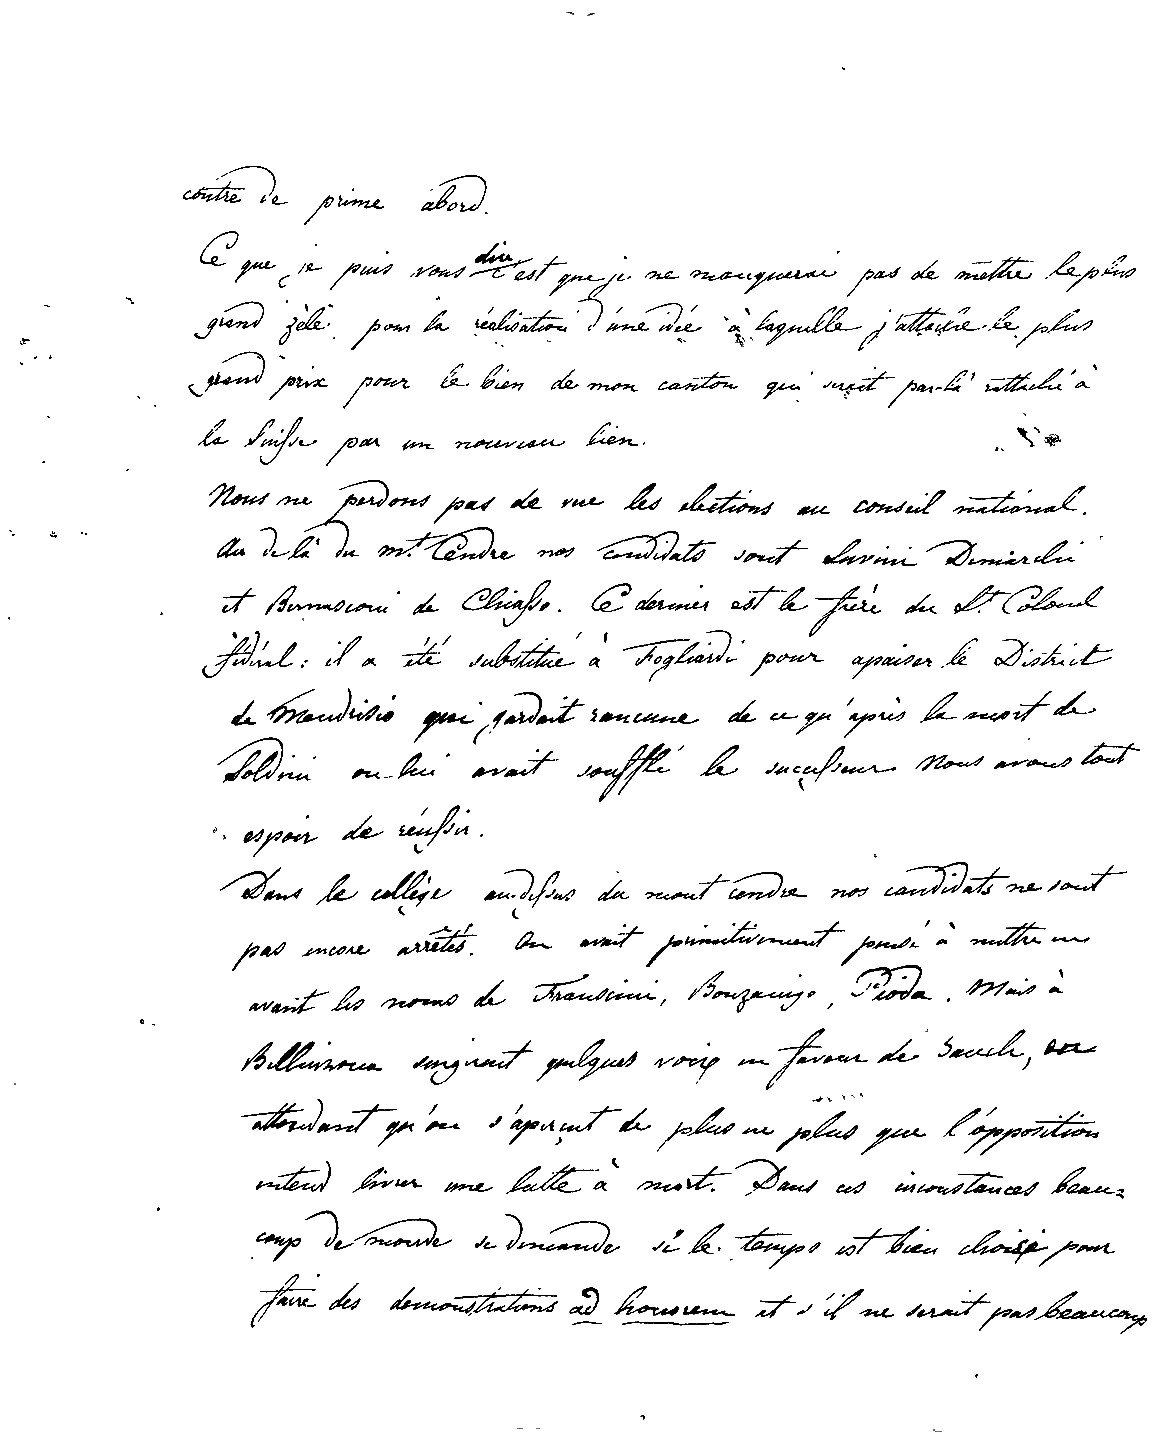 contre de prime abord.
Ce que je puis vous dire c'est que je ne manquerai pas de mettre le plus
grand zèle pour la réalisation d'une idée à laquelle j'attache le plus
grand prix pour le bien de mon canton qui serait par-là rattaché à
la Suisse par un nouveau lien.
Nous ne perdons pas de vue les elections au conseil national.
Au delà du mt. Cendre nos candidats sont Luvini Demarchi
et Bernasconi de Chiasso. Ce dernier est le frère du Lt Colonel
fédéral: il a été substitué à Fogliardi pour apaiser le District
de Mendrisio qui gardait rancune de ce qu'après la mort de
Soldini on lui avait soufflé le successeur. Nous avons tout
espoir de réussir.
Dans le collège au-dessus du mont cendre nos candidats ne sont
pas encore arrêtés. On avait primitivement pensé à mettre en
avant les noms de Franscini, Bonzanigo, Pioda. Mais à
Bellinzona surgirent quelques voix en faveur de Jauch, en
attendant qu'on s'aperçut de plus en plus que l'opposition
entend livrer une lutte à mort. Dans ces circonstances beau=
coup de monde se demande si le temps est bien choisi pour
faire des demonstrations ad honorem et s'il ne serait pas beaucoup